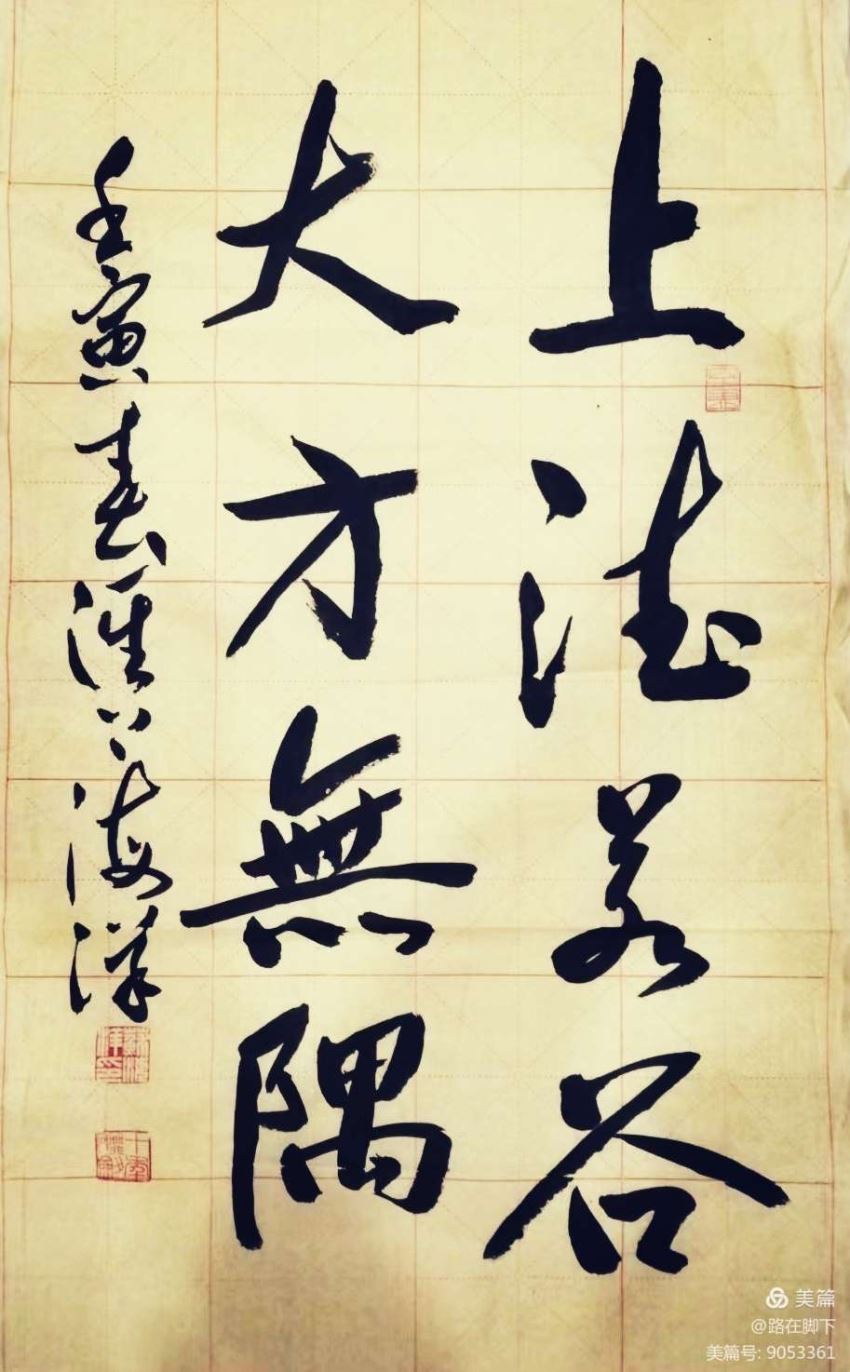 上德若谷
大方無隅
壬寅春淮上海洋
美篇
@路在脚下
美篇号: 9053361